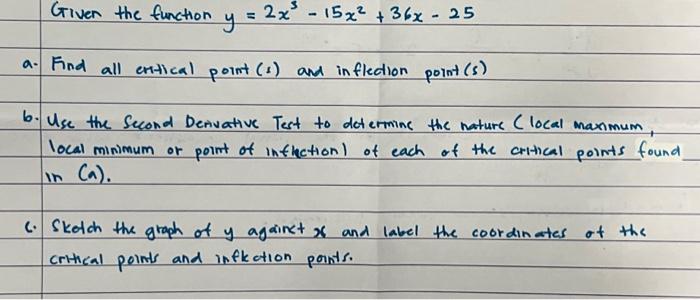 Given the function y = 2x³ - 15x² + 36x - 25
a. Find all critical point (s) and inflection point (s)
b. Use the Second Derivative Test to determine the nature ( local maximum,
local minimum or point of inflection) of each of the critical points found
in (a).
c. Sketch the graph of y against x and label the coordinates of the
critical points and inflection points.